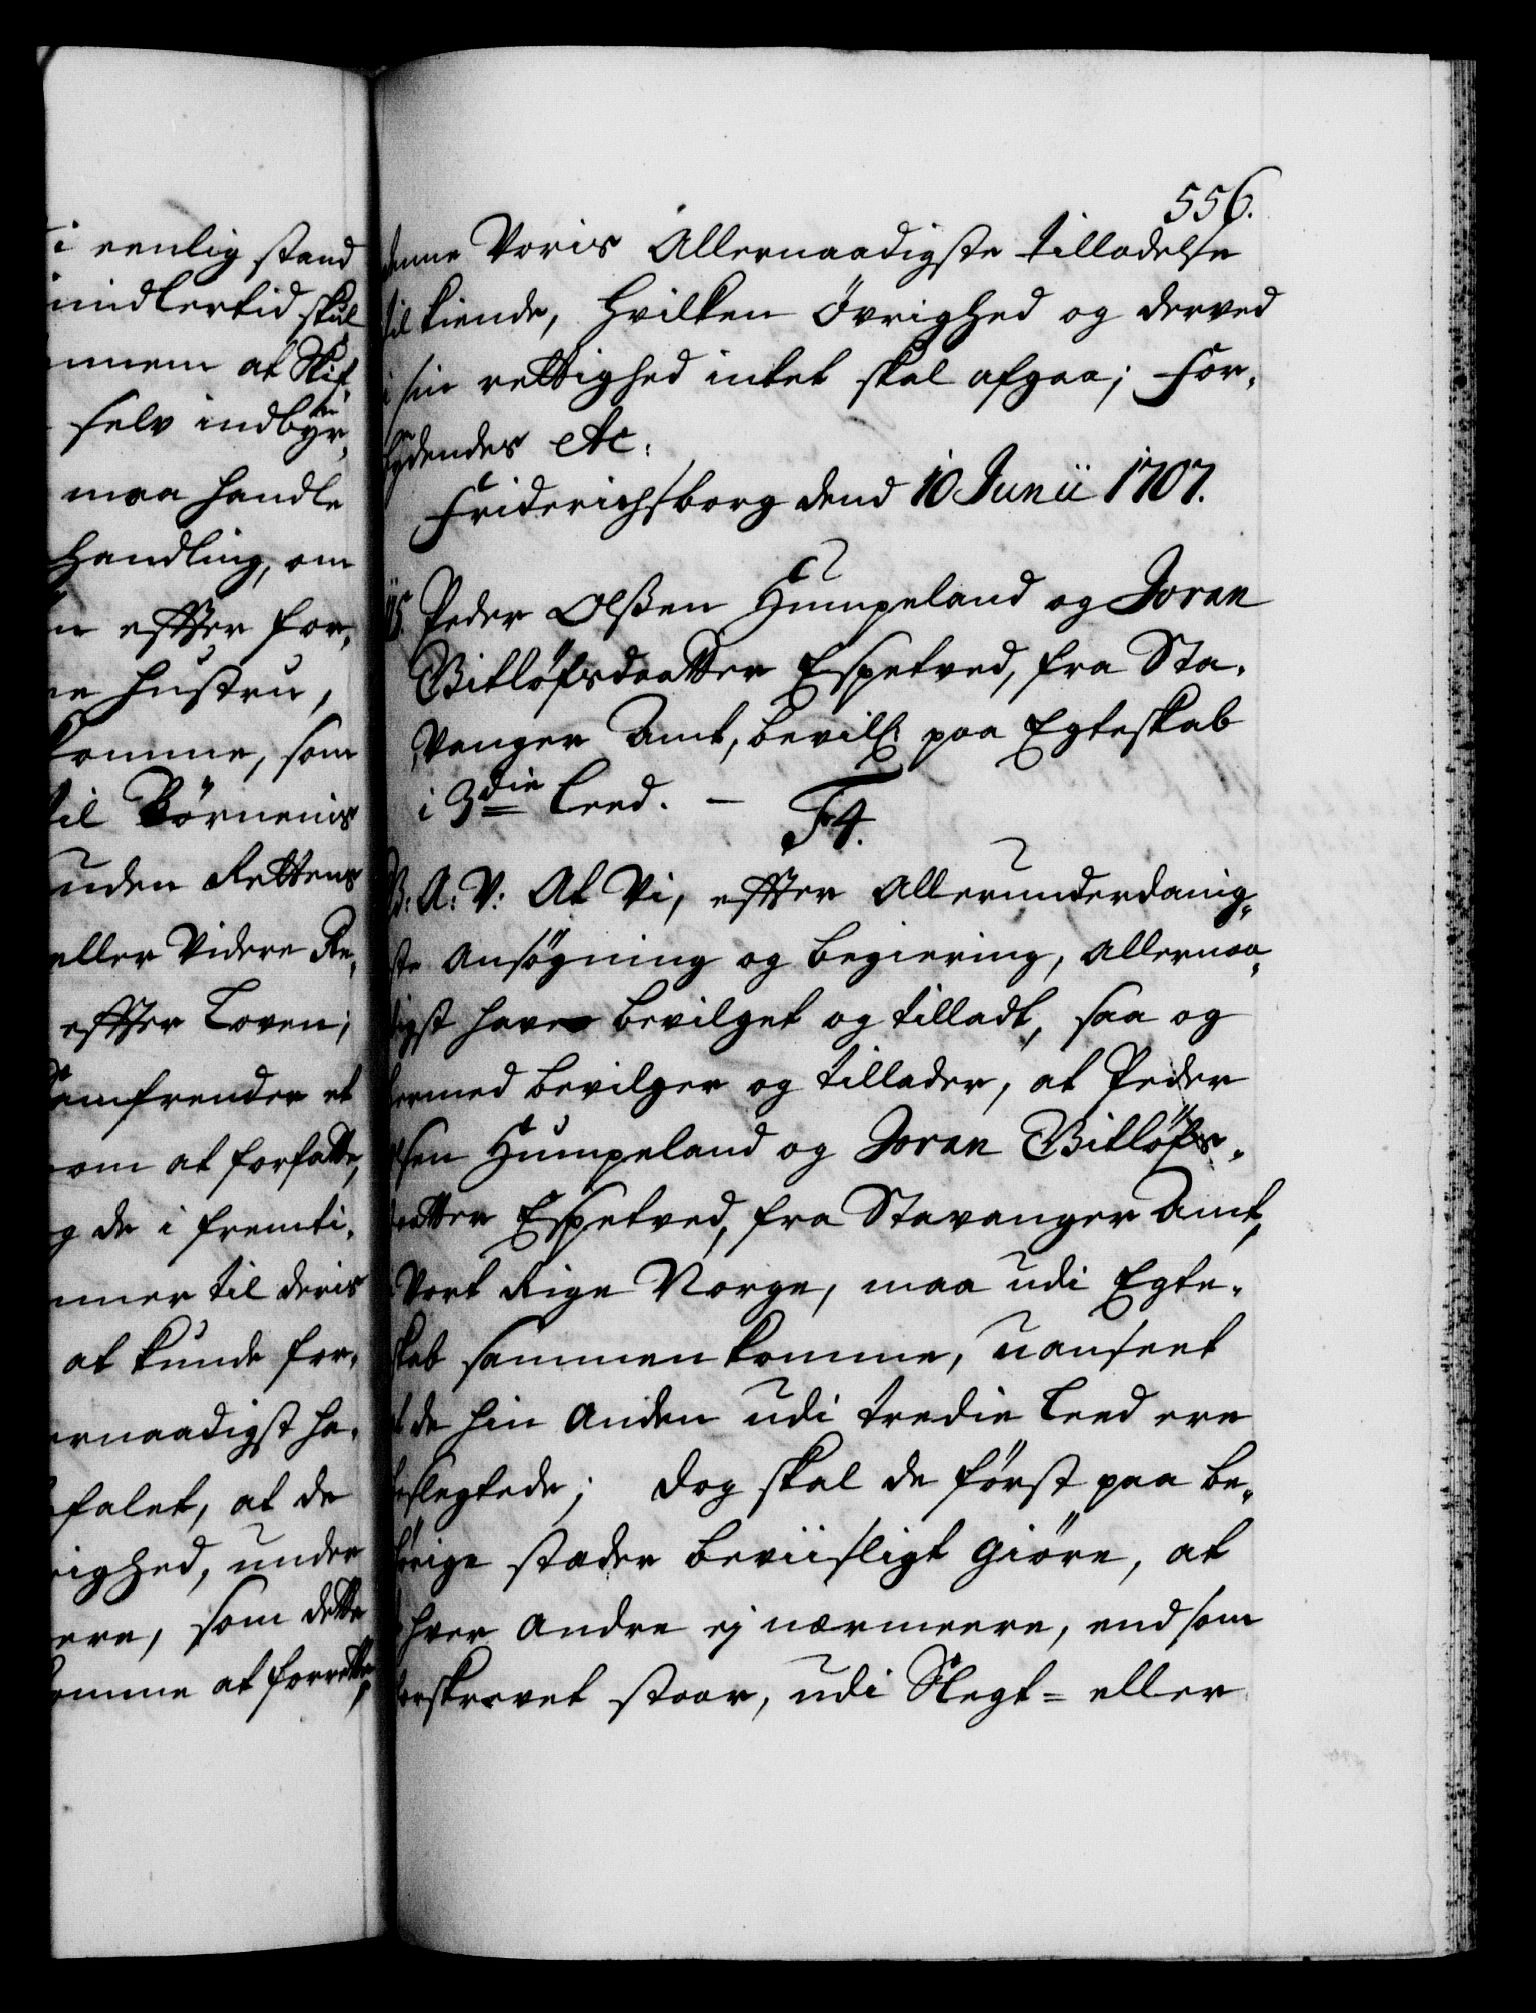 i eenlig stand
midlertid skul
nnem at Skif
selv indbyr,
maa handle
Handling, om
n effter for,
ne Hustru,
komme, som
til Börnenis
uden Rettens
eller Videre Re,
effter Loven;
Samfrender et
om at forfatte,
g de i fremti,
nner til deris
at kunde for,
ernaadigst ha,
falet, at de
righed, under
ere, som dette
komme at forrette,
556.
denne Voris Allernaadigste tilladelse
til kiende, Hvilken Övrighed og derved
i sin rettighed intet skal afgaa; For,
bydendes etc:
Friderichsborg dend 10 Junii 1707.
Peder Olßen Humpeland og Joran
Vitlöfsdaatter Espetved, fra Sta,
vanger Amt, bevill: paa Egteskab
i 3die Leed. —
F4.
B: A: V: At Vi, effter Allerunderdanig,
ste Ansögning og begiering, Allernaa,
digst have bevilget og tilladt, saa og
hermed bevilger og tillader, at Peder
Olsen Humpeland og Joran Vitlöfs,
daatter Espetved, fra Stavanger Amt,
Vort Rige Norge, maa udi Egte,
skab sammenkomme, uanseet
at de hin Anden udi tredie Leed ere
beslegtede; dog skal de först paa be,
hörige stæder beviisligt giöre, at
hver Andre ej nærmeere, end som
forskrevet staar, udi Slegt= eller